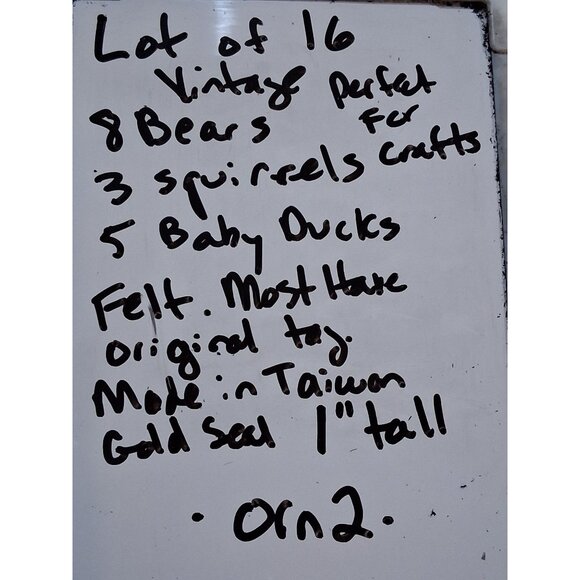 Lot of 16
Vintage Perfect
8 Bears For
3 squirrels crafts
5 Baby Ducks
Felt. Most Have
original tag.
Made in Taiwan
Gold Seal 1" tall
· Orn2 ·